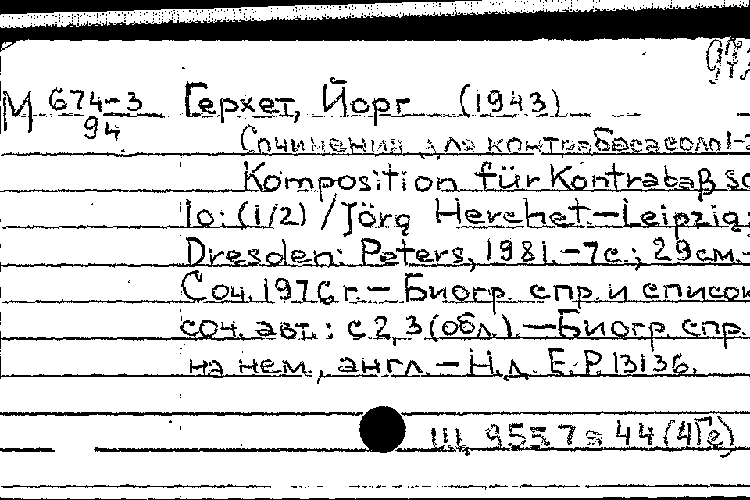 97
М 674-3 Герхет, Йорг (1943)
94
Сочинения для контрабаса соло 1-2
Komposition für Kontrabaß so
lo: (1/2) / Jörg Herchet. — Leipzig;
Dresden: Peters, 1981. — 7с.; 29см. —
Соч. 1976 г. — Биогр. спр. и список
соч. авт.: с 2, 3 (обл.). — Биогр. спр.
на нем., англ. — Н.д. E.P. 13136.
Щ 955.7 я 44 (4Ге)